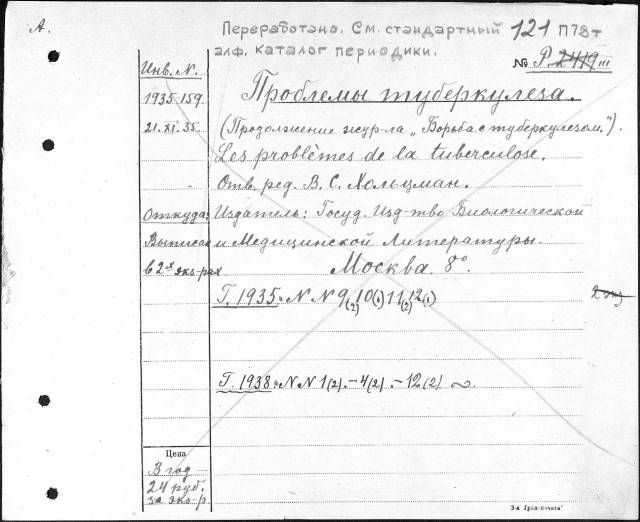 А.
Переработано. См. стандартный 121 П78т
алф. каталог периодики.
№ Р. 2419 III
Инв. N.
1935-159
21. XI. 35.
Проблемы туберкулеза.
(Продолжение жур-ла „Борьба с туберкулезом.").
Les problèmes de la tuberculose.
Отв. ред. В. С. Хольцман.
Откуда: Издатель: Госуд. Изд-тво Биологической
Выписан и Медицинской Литературы.
в 2х экз-рах Москва. 8°.
Г. 1935. N N 9(2) 10(1) 11(2) 12(1) 2 экз
Г. 1938. N N 1(2). – 4(2). – 12(2)
Цена
В год
24 руб.
за экз-р.